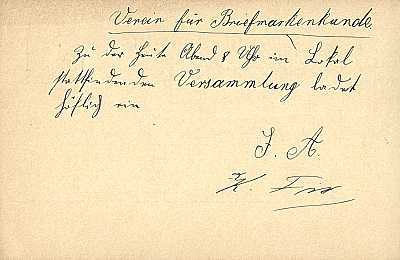 Verein für Briefmarkenkunde.
Zu der heute Abend 8 Uhr im Lokal
stattfindenden Versammlung ladet
höflich ein
I. A.